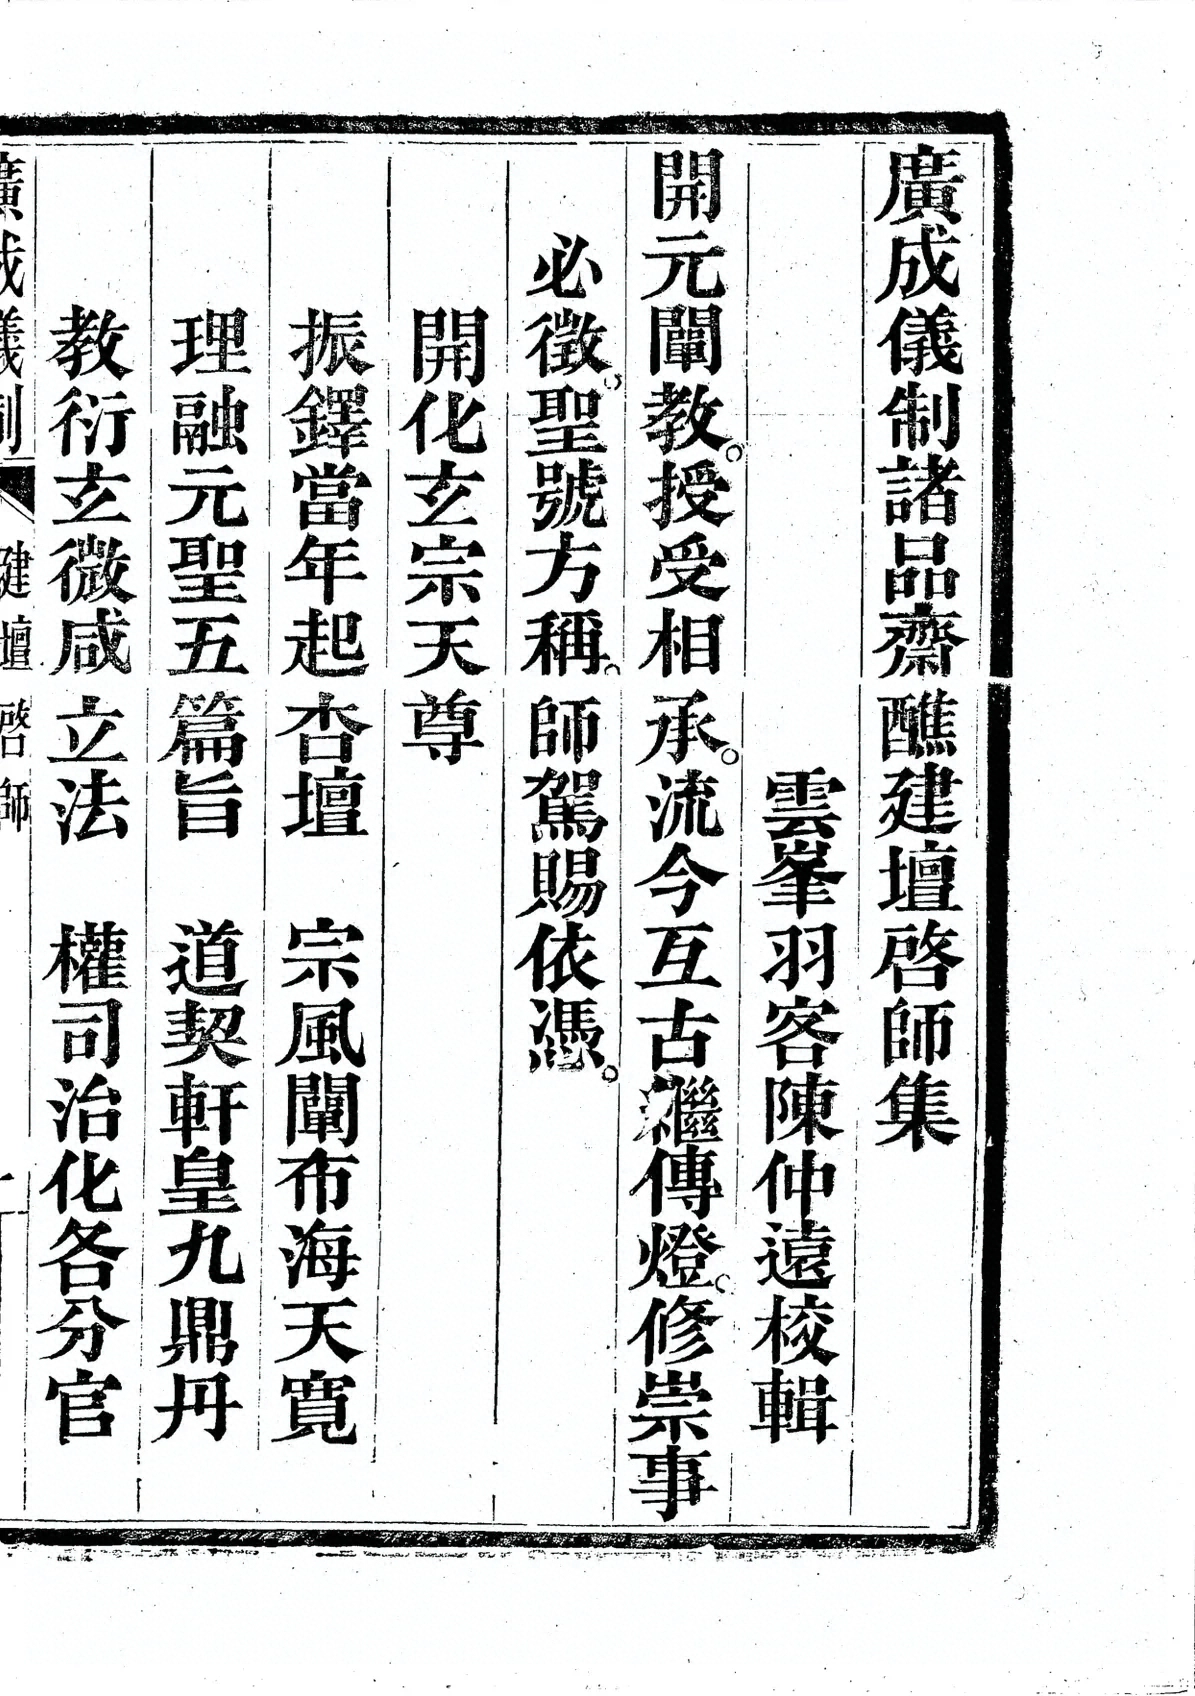 廣成儀制諸品齋醮建壇啓師集
雲峯羽客陳仲遠校輯
開元闡教。授受相承。流今互古繼傳燈。修崇事
必徵。聖號方稱。師駕賜依憑。
開化玄宗天尊
振鐸當年起杏壇　宗風闡布海天寛
理融元聖五篇旨　道契軒皇九鼎丹
教衍玄微咸立法　權司治化各分官
廣成儀制　建壇啓師　一